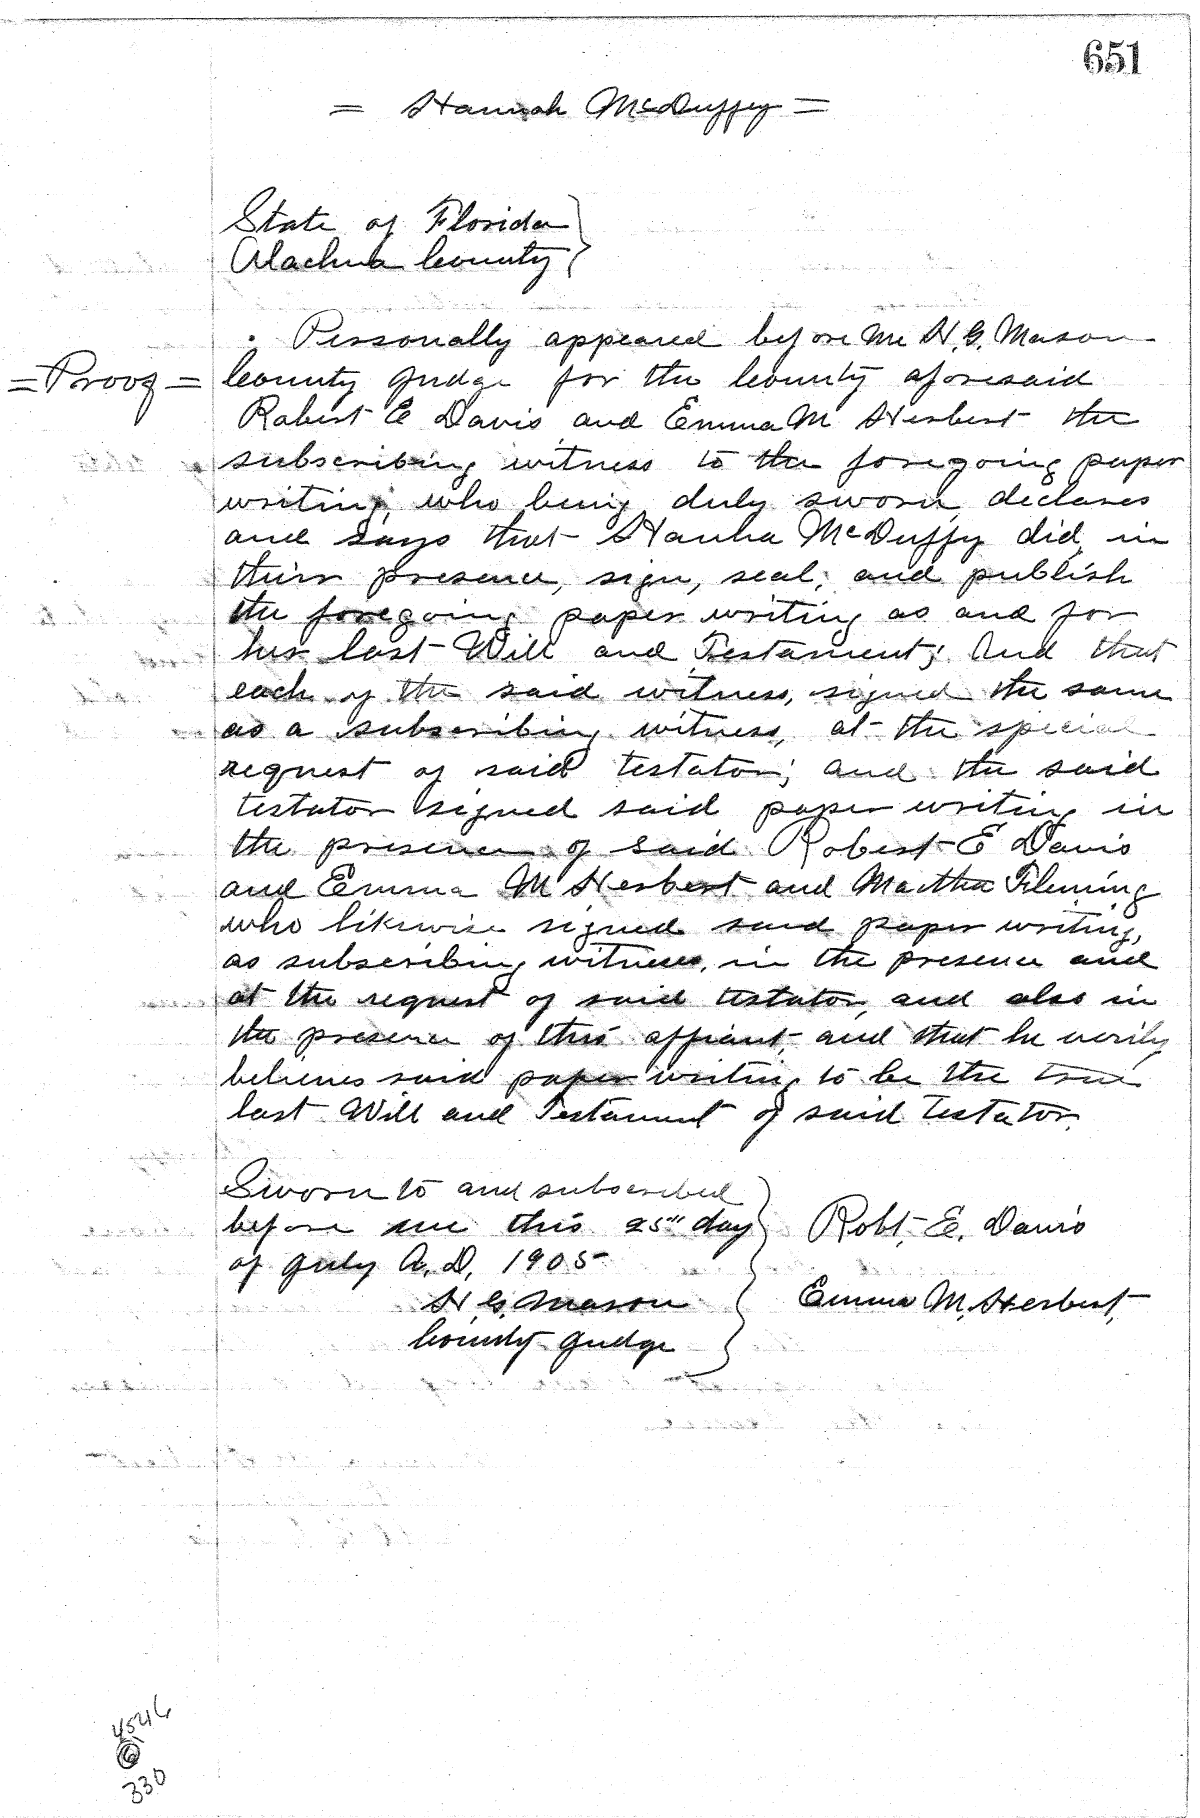 651
= Hannah McDuffey =
State of Florida
Alachua County
Personally appeared before me H. G. Mason
= Proof =
County Judge for the County aforesaid
Robert E Davis and Emma M Herbert the
subscribing witness to the foregoing paper
writing, who being duly sworn, declares
and says that Hanha McDuffy did, in
their presence, sign, seal, and publish
the foregoing paper writing as and for
her last Will and Testament; And that
each of the said witness, signed the same
as a subscribing witness, at the special
request of said testator; and the said
testator signed said paper writing in
the presence of said Robert E Davis
and Emma M Herbert and Martha Fleming
who likewise signed said paper writing,
as subscribing witness, in the presence and
at the request of said testator, and also in
the presence of this affiant, and that he verily
believes said paper writing to be the true
last Will and Testament of said Testator.
Sworn to and subscribed
before me this 25th day
of July A.D. 1905
H. G. Mason
County Judge
Robt. E. Davis
Emma M. Herbert.
4546
6
330